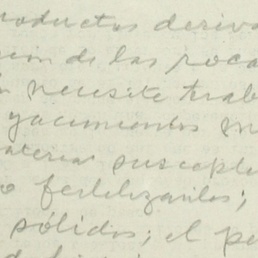 roductos deriva
ión de las roca
n necesite trab
yacimientos m
aterias suscepti
o fertilizarlos;
sólidos; el pe